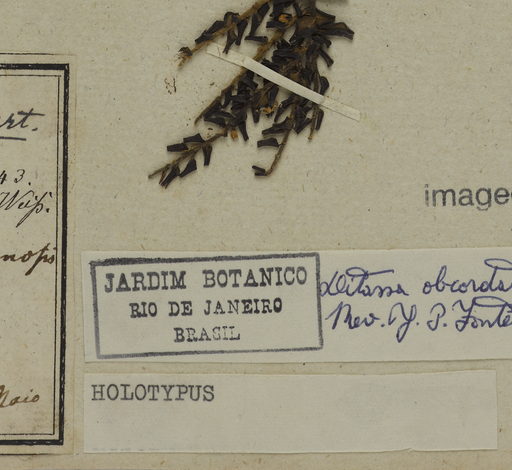 art.
43.
Weiß.
Maio
image
JARDIM BOTANICO
RIO DE JANEIRO
BRASIL
Ditassa obcorda
Rev. J. P. Fonte
HOLOTYPUS